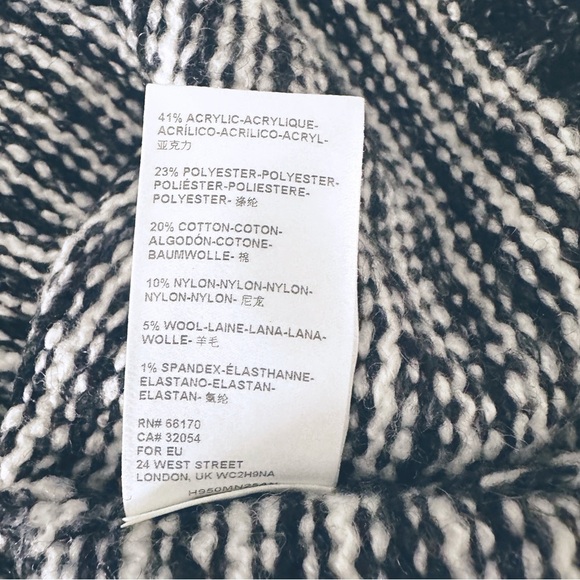 41% ACRYLIC-ACRYLIQUE-
ACRÍLICO-ACRILICO-ACRYL-
亚克力
23% POLYESTER-POLYESTER-
POLIÉSTER-POLIESTERE-
POLYESTER- 涤纶
20% COTTON-COTON-
ALGODÓN-COTONE-
BAUMWOLLE- 棉
10% NYLON-NYLON-NYLON-
NYLON-NYLON- 尼龙
5% WOOL-LAINE-LANA-LANA-
WOLLE- 羊毛
1% SPANDEX-ÉLASTHANNE-
ELASTANO-ELASTAN-
ELASTAN- 氨纶
RN# 66170
CA# 32054
FOR EU
24 WEST STREET
LONDON, UK WC2H9NA